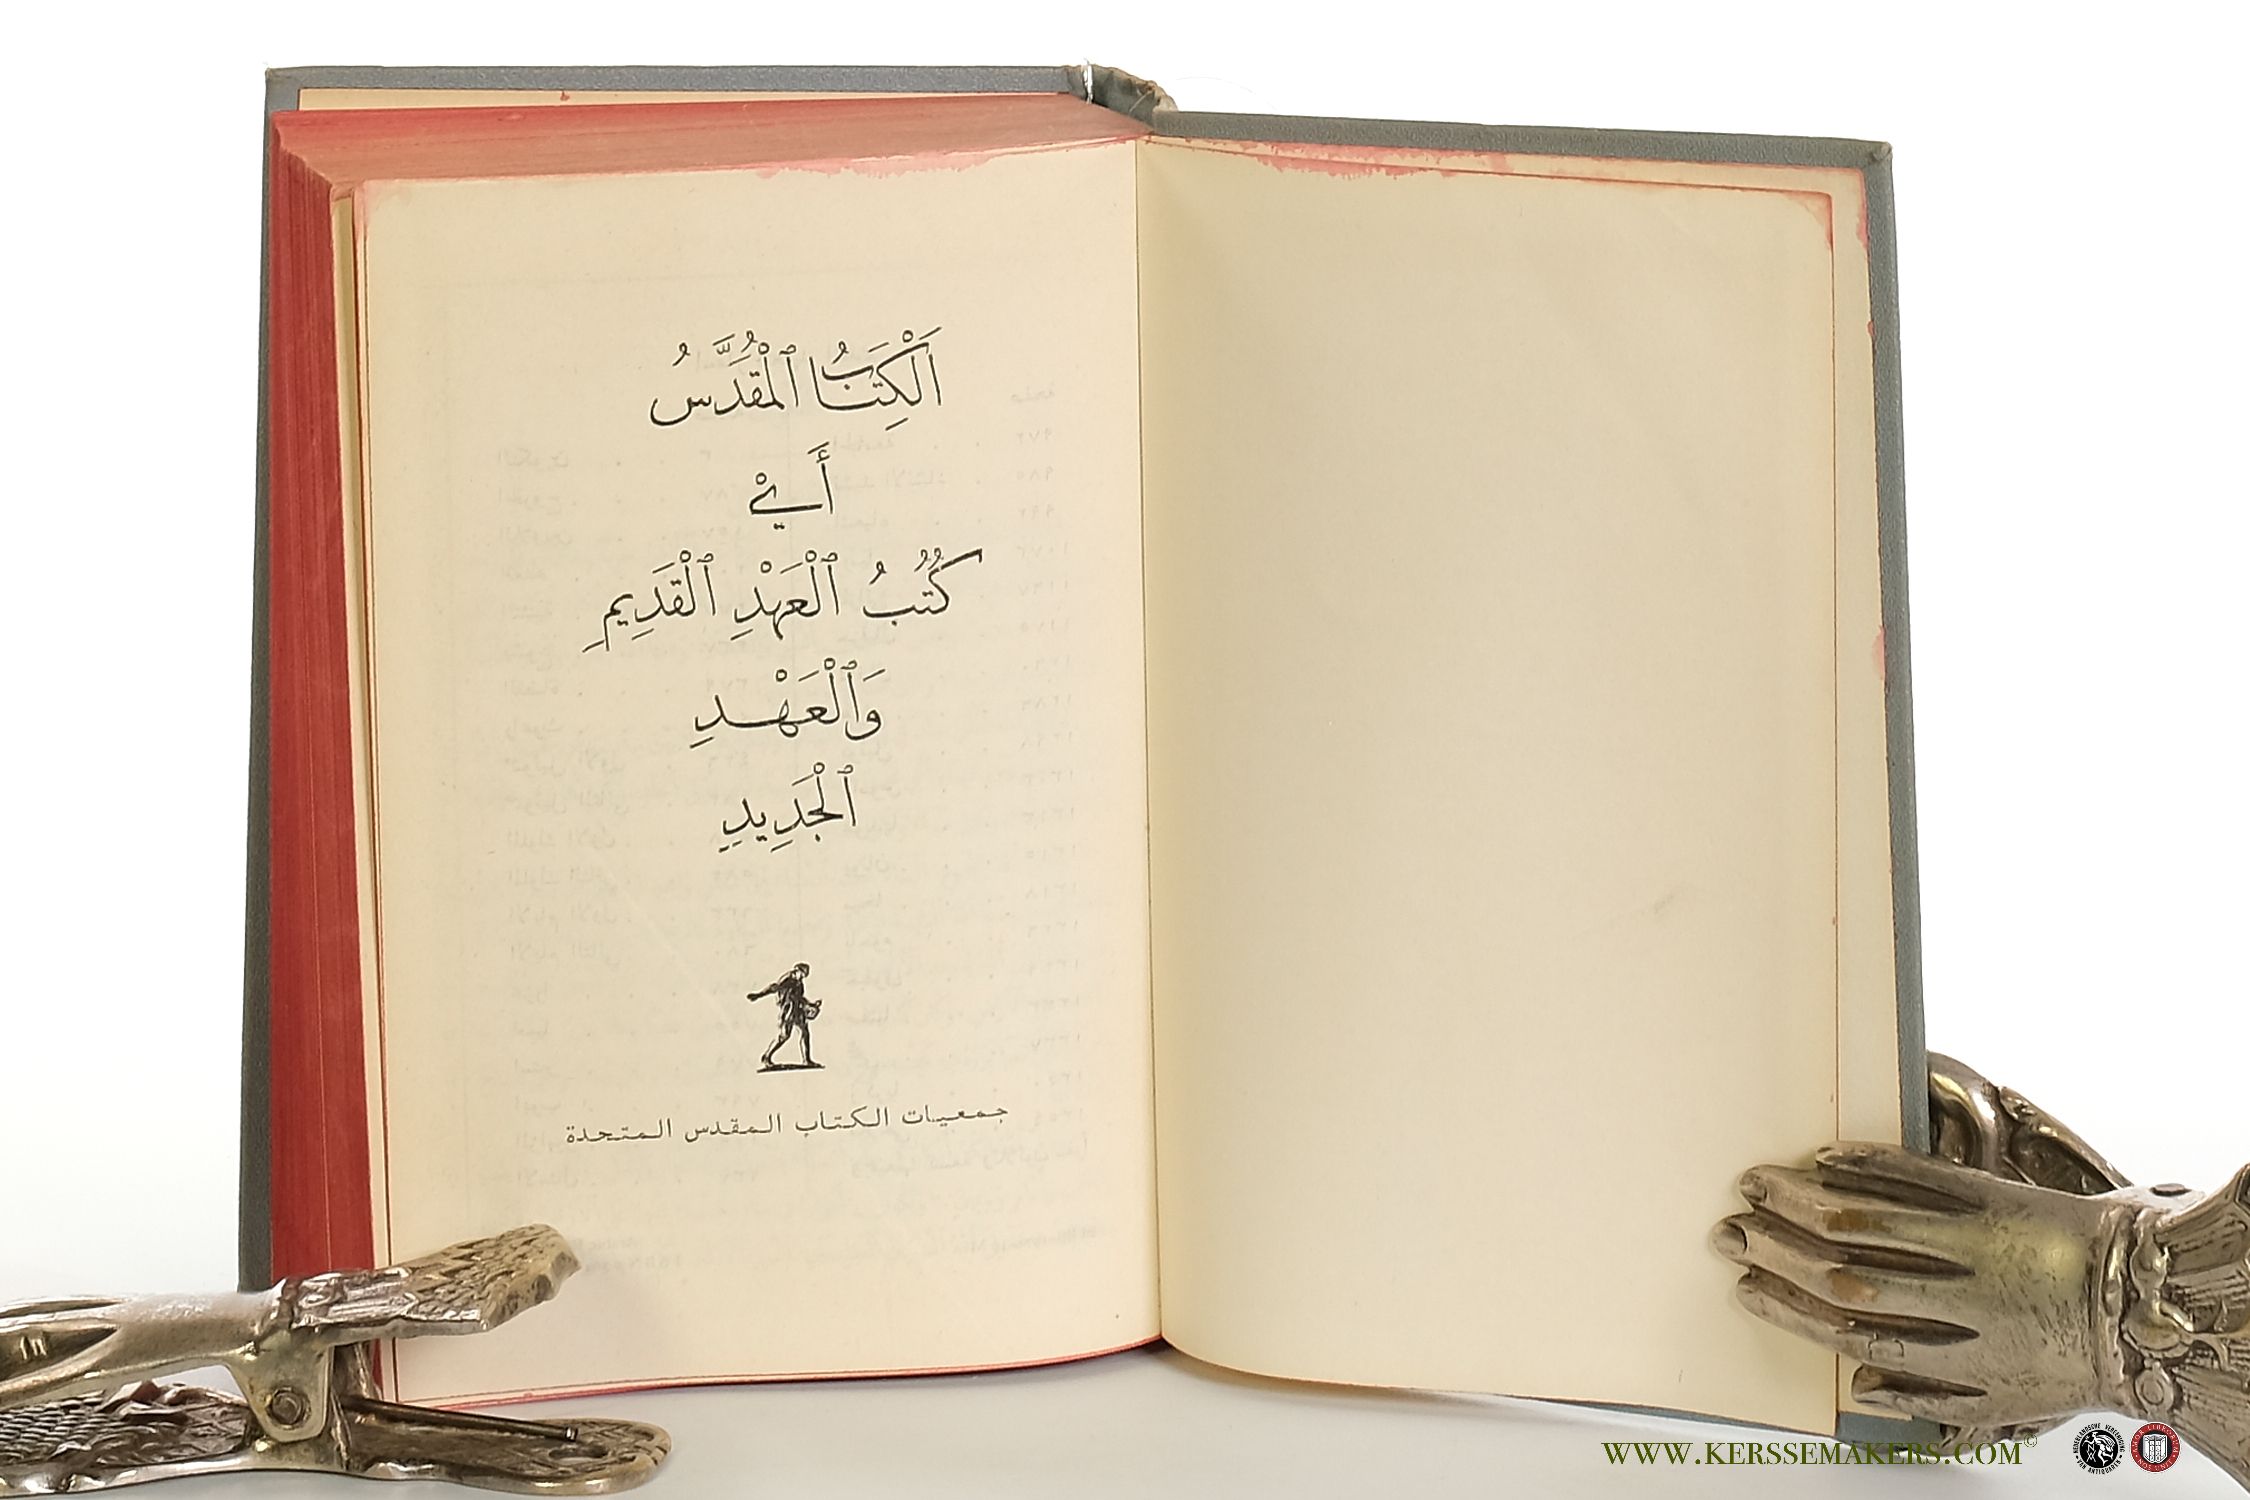 اَلْكِتَابُ ٱلْمُقَدَّسُ
أَيْ
كُتُبُ ٱلْعَهْدِ ٱلْقَدِيمِ
وَٱلْعَهْدِ
ٱلْجَدِيدِ
جمعيات الكتاب المقدس المتحدة
WWW.KERSSEMAKERS.COM©